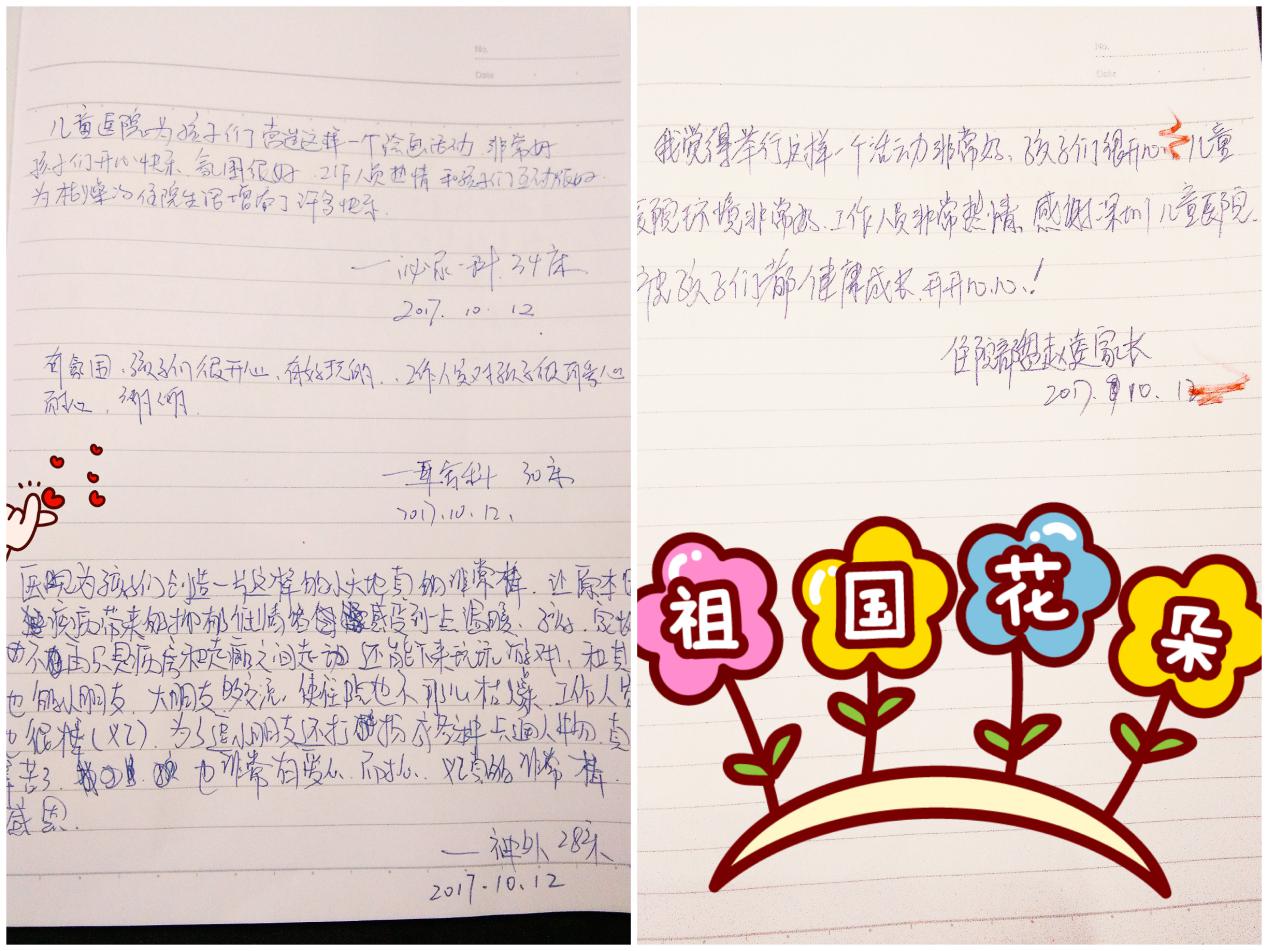 No.
Date
儿童医院为孩子们营造这样一个绘画活动 非常好
孩子们开心快乐、氛围很好 工作人员热情 和孩子们互动很好.
为枯燥的住院生活增添了许多快乐.
—泌尿一科 34床
2017. 10. 12
有氛围,孩子们很开心,有好玩的..工作人员对孩子很有爱心
耐心,谢谢.
—耳鼻科 30床
2017.10.12.
医院为孩子们创造一片这样的小天地真的非常棒.让原本
疾病带来的 低 情绪 感受到一点温暖、孩子、
不 只是病房和走廊之间走动 还能下来玩玩游戏、和其
也的小朋友、大朋友 交流,使住院也不那么枯燥.工作人员
也很棒(义工).为了逗小朋友还打扮 卡通人物.真
辛苦了. 也非常有爱心 耐心.义工真的非常棒.
感恩.
—神外 28床
2017.10.12
No.
Date
我觉得举行这样一个活动非常好、孩子们很开心 儿童
医院环境非常好.工作人员非常热情、感谢深圳儿童医院.
使孩子们都健康成长.开开心心!
住院部 家长
2017. 10. 12
祖国花朵